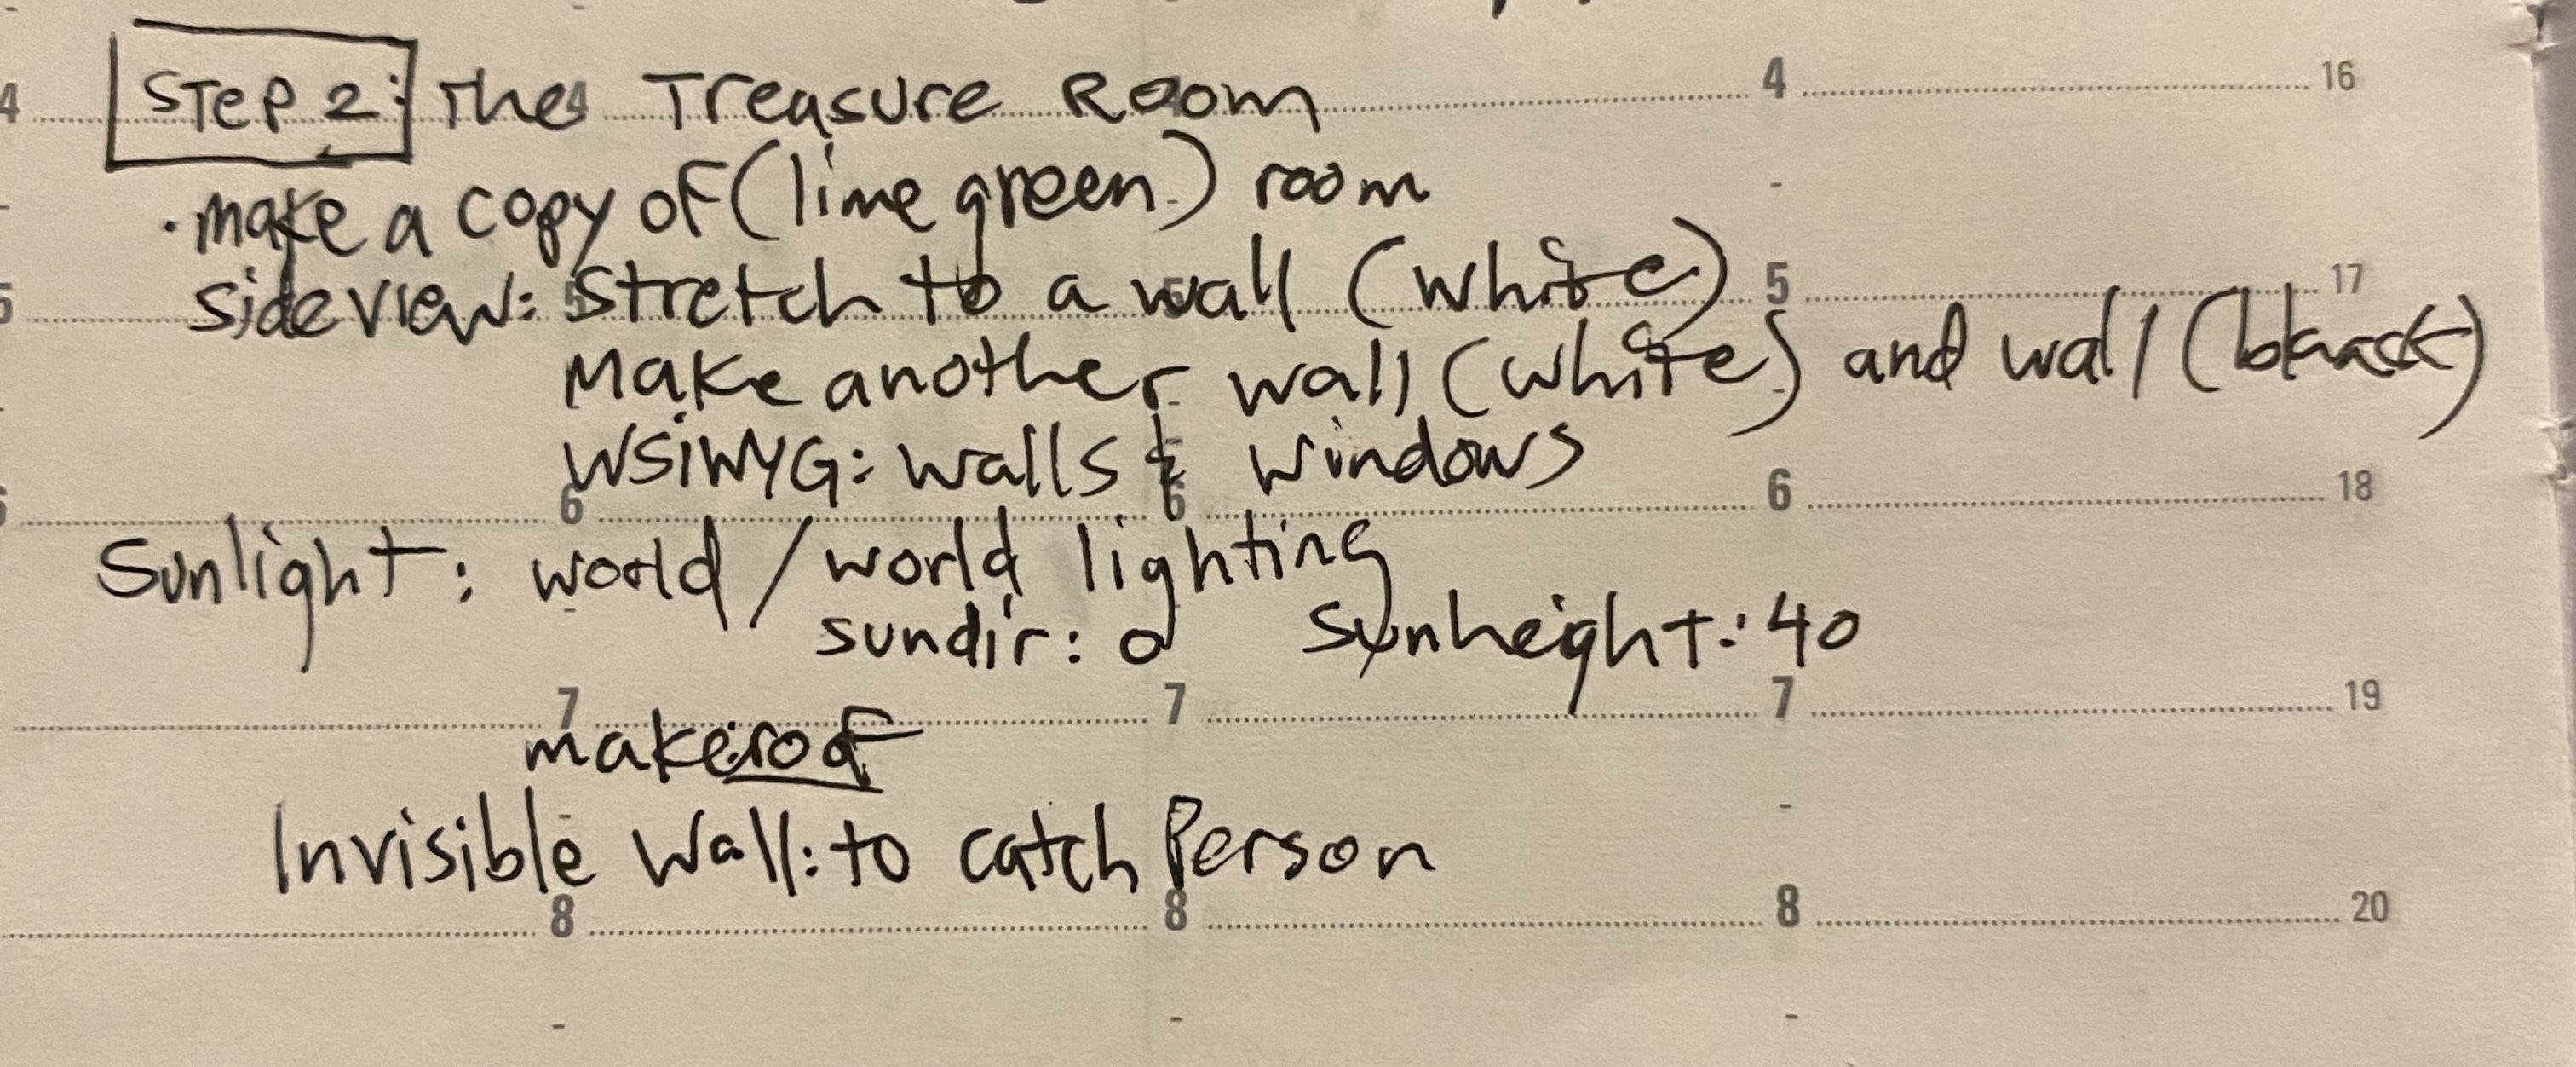 STEP 2: The Treasure Room 4 16
• make a copy of (lime green) room
sideview: Stretch to a wall (white) 5 17
Make another wall (white) and wall (black)
WSIWYG: walls & windows
6 6 6 18
Sunlight: world / world lighting
sundir: 0 Sunheight: 40
7 7 7 19
make roof
Invisible Wall: to catch Person
8 8 8 20